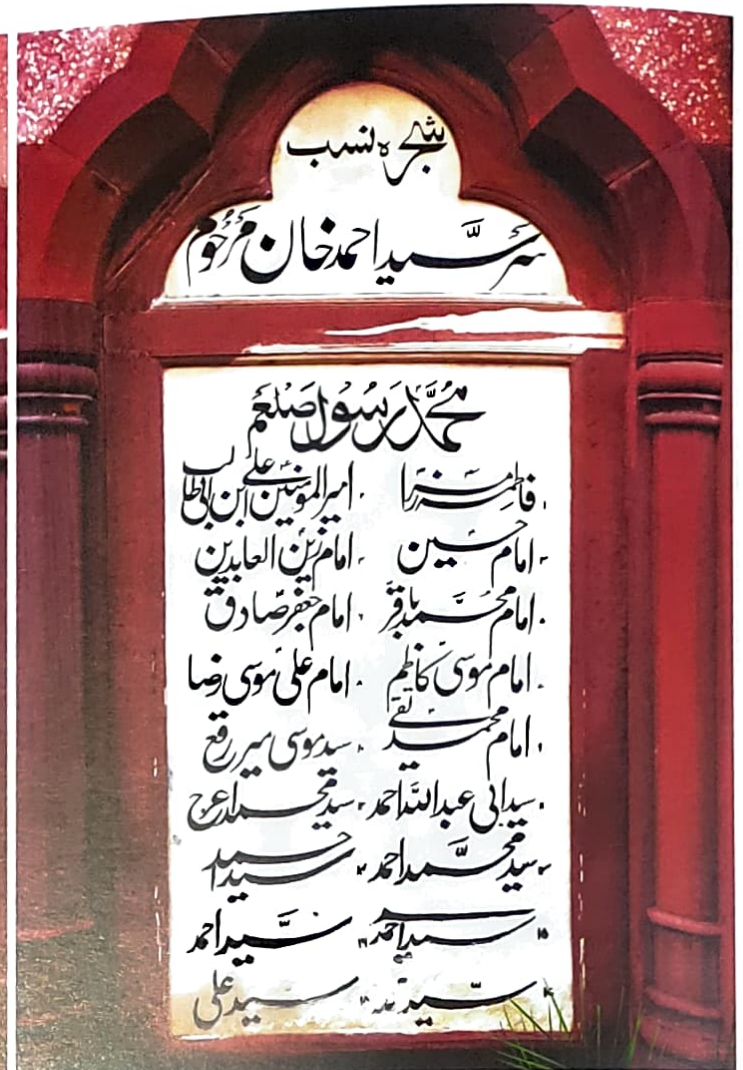 شجرہ نسب
سر سیّد احمد خان مرحوم
محمّد رسول صلعم
فاطمہ زہرا امیر المومنین علی ابن ابی طالب
امام حسین امام زین العابدین
امام محمّد باقر امام جعفر صادق
امام موسی کاظم امام علی موسی رضا
امام محمد تقی سید موسی میر رقع
سید ابی عبداللہ احمد سید محمد اعرج
سید محمّد احمد سید احمد
۱۵ سید احمد ۱۶ سیّد احمد
سیّد سید علی